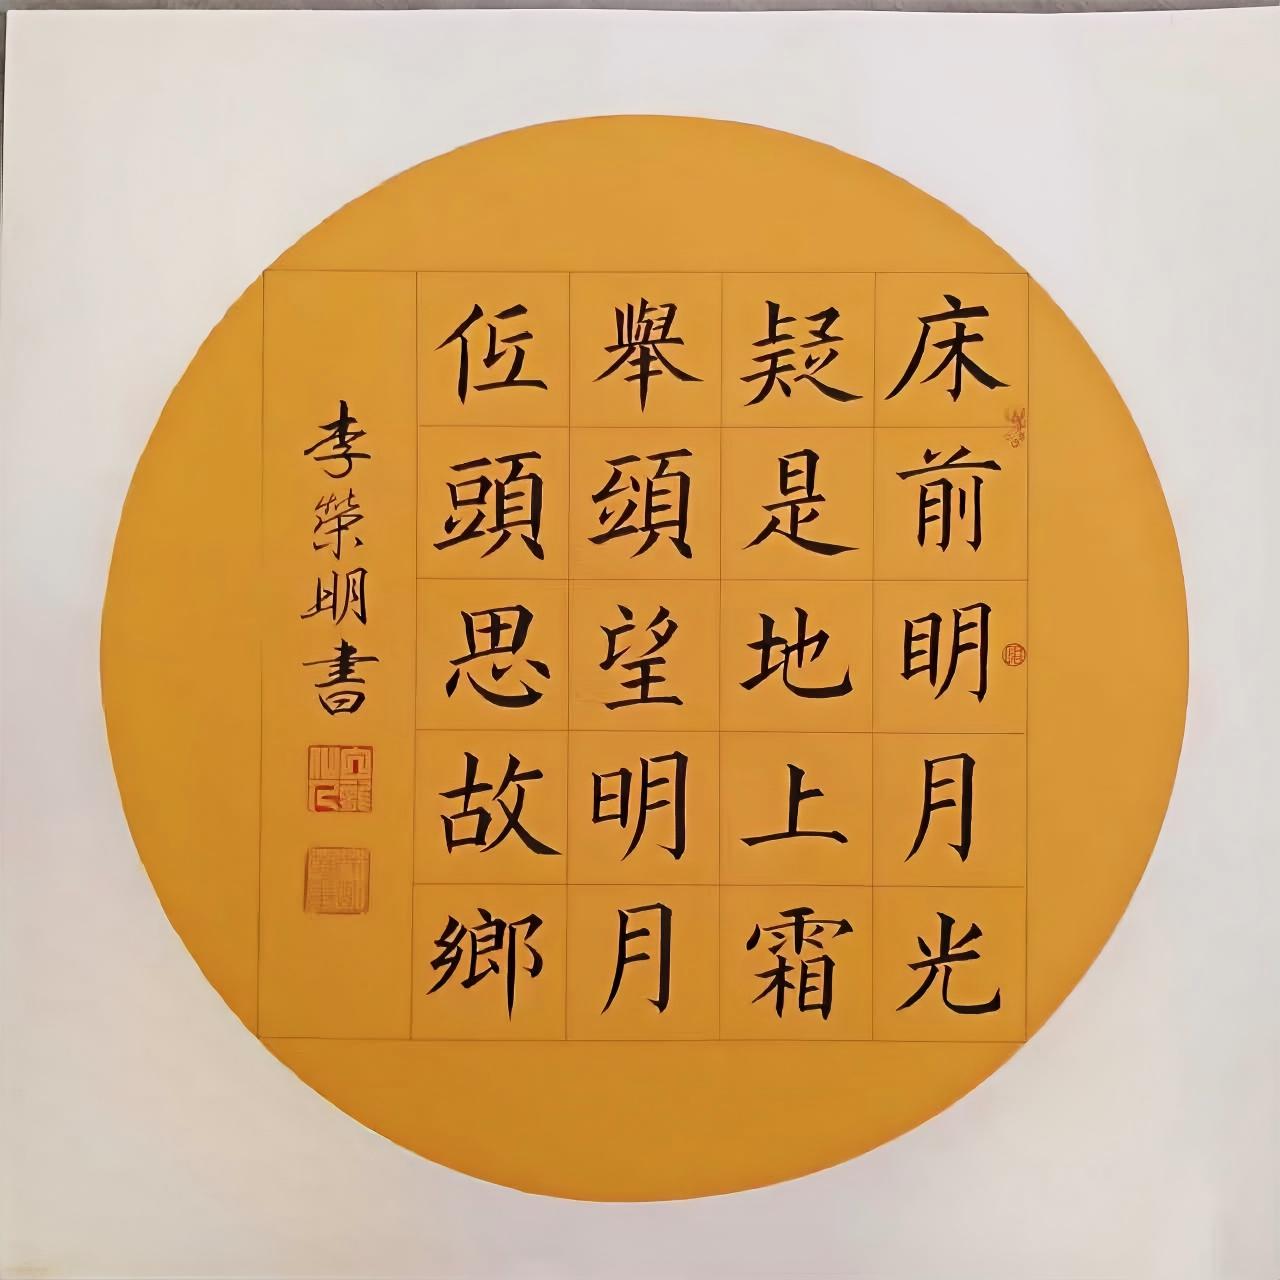 床前明月光
疑是地上霜
舉頭望明月
低頭思故鄉
李榮明書